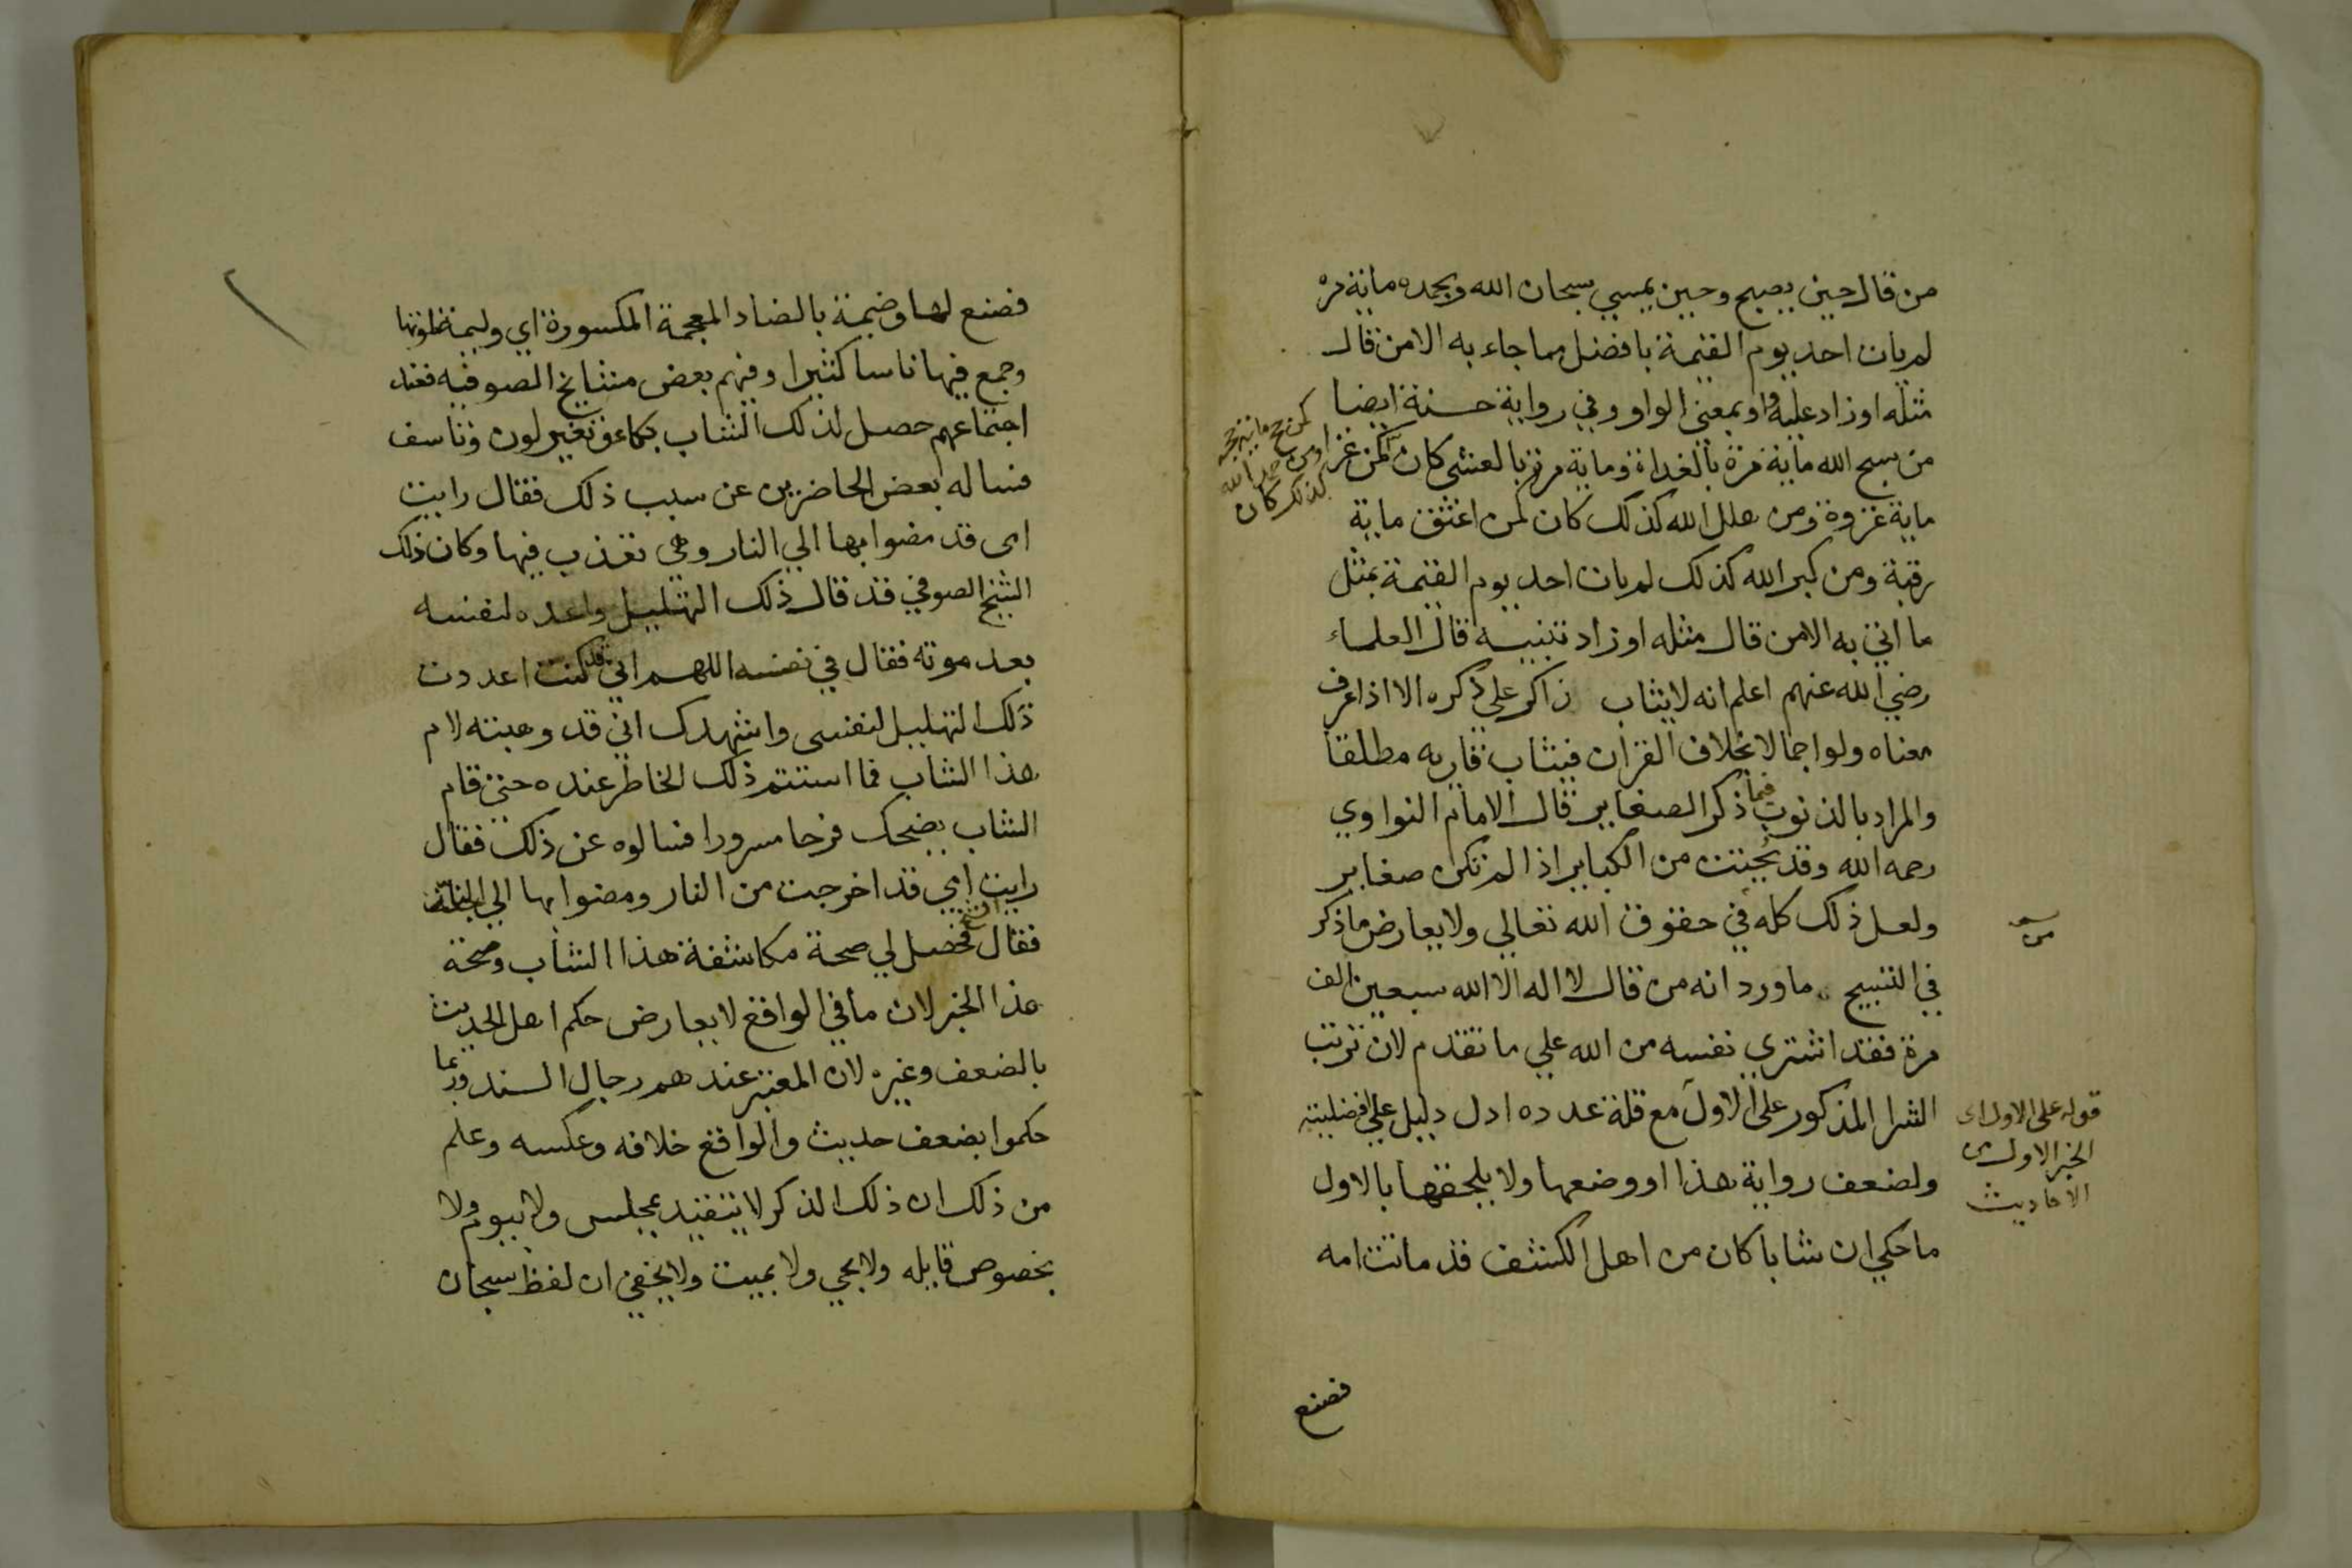 من قال حين يصبح وحين يمسي سبحان الله وبحمده ماية مره
لم يات احد يوم القيمة بافضل مما جاء به الا من قال
مثله او زاد عليه واو بمعني الواو وفي رواية حسنة ايضا
من سبح الله ماية مرة بالغداة وماية مرة بالعشي كان كمن غزا
ماية غزوة ومن هلل الله كذلك كان كمن اعتق ماية
رقبة ومن كبر الله كذلك لم يات احد يوم القيمة بمثل
ما اتي به الا من قال مثله او زاد تنبيه قال العلماء
رضي الله عنهم اعلم انه لا يثاب ذاكر علي ذكره الا اذا عرف
معناه ولو اجمالا بخلاف القران فيثاب قاريه مطلقا
والمراد بالذنوب فيما ذكر الصغاير قال الامام النواوي
رحمه الله وقد يُجتت من الكباير اذا لم تكن صغاير
ولعل ذلك كله في حقوق الله تعالي ولا يعارض ما ذكر
في التسبيح ما ورد انه من قال لا اله الا الله سبعين الف
مرة فقد اشتري نفسه من الله علي ما تقدم لان ترتب
الشرا المذكور علي الاول مع قلة عدده ادل دليل علي افضليته
ولضعف رواية هذا او وضعها ولا يلحقها بالاول
ما حكي ان شابا كان من اهل الكشف قد ماتت امه
فصنع
كمن حج ماية حجه
او من حمد الله
كذلك كان
قوله علي الاول اي
الخبر الاول من
الاحاديث
فصنع لها وضيمة بالضاد المعجمة المكسورة اي وليمة
وجمع فيها ناسا كثيرا وفيهم بعض مشايخ الصوفيه فعند
اجتماعهم حصل لذلك الشاب بكاء وتغير لون وتاسف
فساله بعض الحاضرين عن سبب ذلك فقال رايت
امي قد مضوا بها الي النار وهي تعذب فيها وكان ذلك
الشيخ الصوفي قد قال ذلك التهليل واعده لنفسه
بعد موته فقال في نفسه اللهم اني قد كنت اعددت
ذلك التهليل لنفسي واشهدك اني قد وهبته لام
هذا الشاب فما استتم ذلك الخاطر عنده حتي قام
الشاب يضحك فرحا مسرورا فسالوه عن ذلك فقال
رايت امي قد اخرجت من النار ومضوا بها الي الجنة
فقال الشيخ فحصل لي صحة مكاشفة هذا الشاب وصحة
هذا الخبر لان ما في الواقع لا يعارض حكم اهل الحديث
بالضعف وغيره لان المعتبر عندهم رجال السند وربما
حكموا بضعف حديث والواقع خلافه وعكسه وعلم
من ذلك ان ذلك الذكر لا يتقيد بمجلس ولا بيوم ولا
بخصوص قايله ولا بحي ولا بميت ولا يخفي ان لفظ سبحان